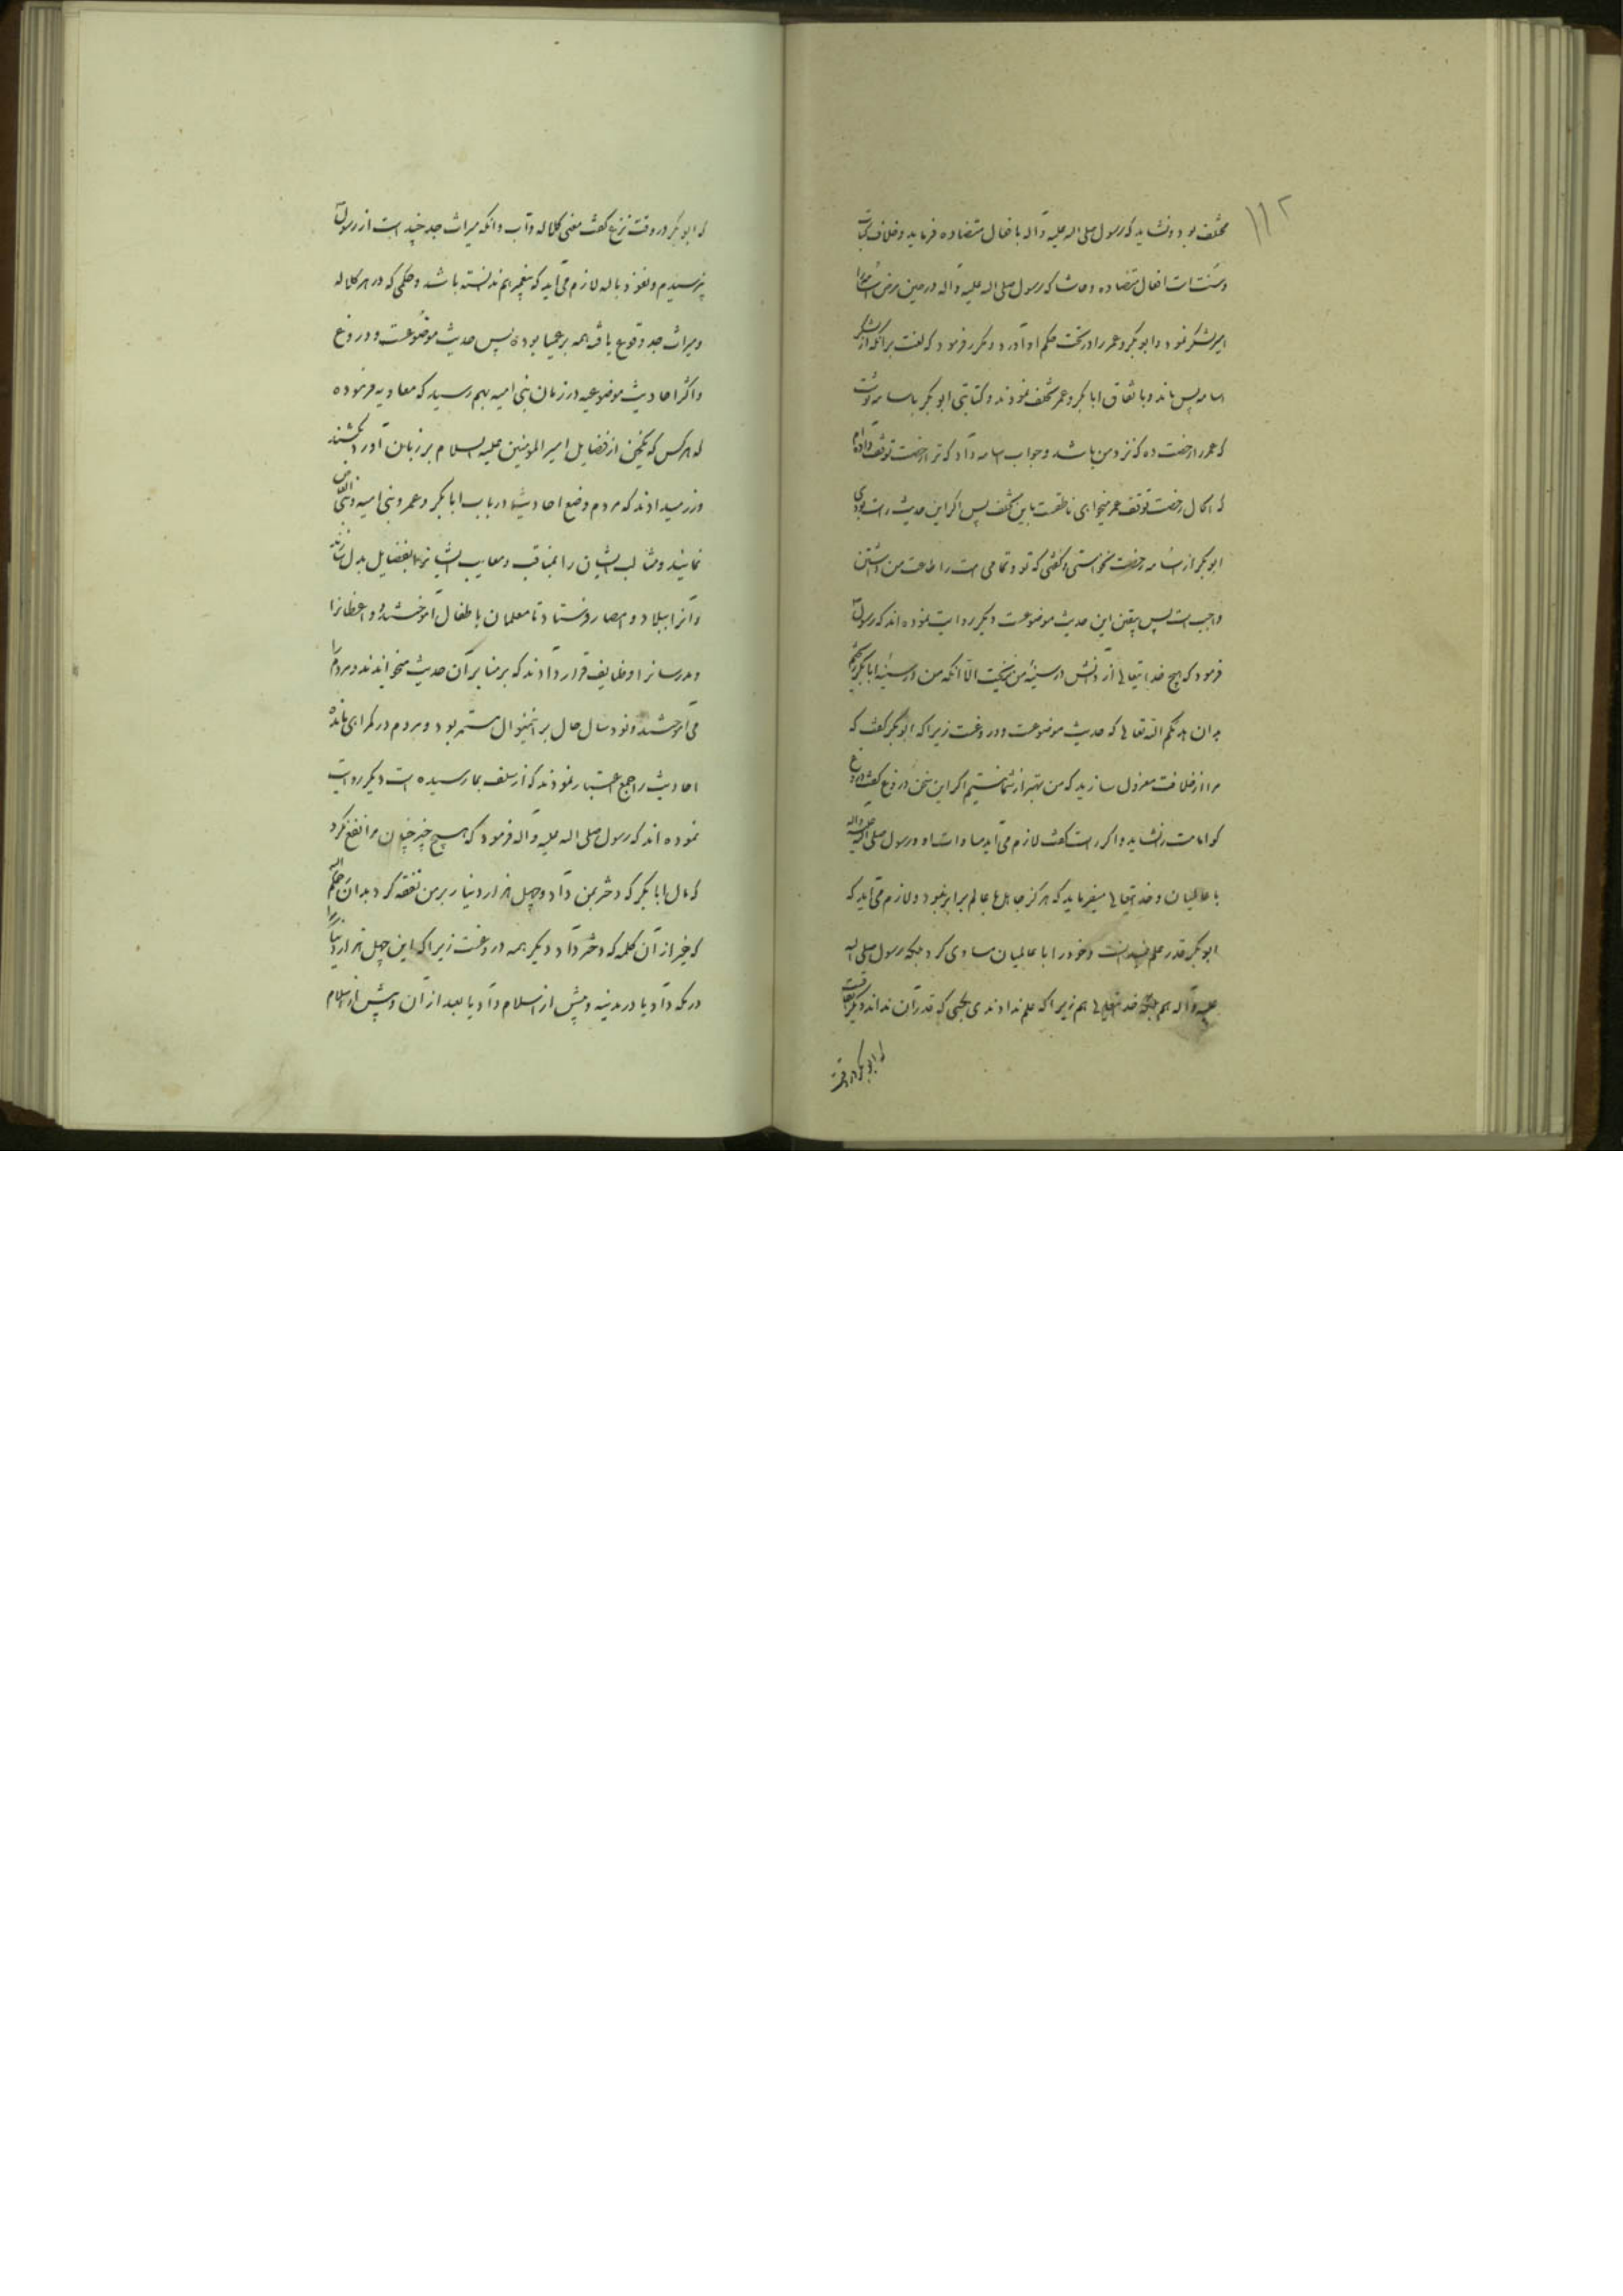 ۱۱۲
مختلف بود و نشاید که رسول صلی اله علیه و آله بافعال متضاده فرماید و خلاف کتاب
و سنت است افعال متضاده و حاشا که رسول صلی اله علیه و آله در حین مرض اسامه را
امیر لشکر نمود و ابوبکر و عمر را در تحت حکم او آورد و مکرر فرمود که لعنت بر آنکه از لشکر
اسامه پس ماند و باتفاق ابابکر و عمر تخلف نمودند و کتابتی ابوبکر باسامه نوشت
که عمر را رخصت ده که نزد من باشد و جواب اسامه داد که ترا رخصت توقف داده‌ام
که الحال رخصت توقف عمر میخواهی ناطقست باین تخلف پس اگر این حدیث راست بودی
ابوبکر از اسامه رخصت نخواستی و گفتی که تو و تمامی امت را طاعت من داشتن
واجبست پس بیقین این حدیث موضوعست دیگر روایت نموده‌اند که رسول
فرمود که هیچ خدایتعالی از دانش در سینه من نریخت الا آنکه من در سینه ابابکر ریختم
بدان هدیکم الله تعالی که حدیث موضوعست و دروغست زیرا که ابوبکر گفت که
مرا از خلافت معزول سازید که من بهتر از شما نیستیم اگر این سخن دروغ گفت دروغ
گو امامت را نشاید و اگر راست گفت لازم می‌آید مساوات او و رسول صلی اله علیه و آله
با عالمیان و خدایتعالی میفرماید که هرگز جاهل با عالم برابر نبود و لازم می‌آید که
ابوبکر قدر علم نمیدانست و خود را با عالمیان مساوی کرد و بلکه رسول صلی اله
علیه و آله هم بلکه خدایتعالی هم زیرا که علم ندادندی بکسی که قدر آن نداند دیگر
که ابوبکر در وقت
که ابوبکر در وقت نزع گفت معنی کلاله و اب و آنکه میراث جد چند است از رسول
نپرسیدم و نعوذ باله لازم می‌آید که پیغمبر هم ندانسته باشد و حکمی که در هر کلاله
و میراث جد وقوع یافته همه بر عمیا بوده پس حدیث موضوعست و دروغ
و اکثر احادیث موضوعیه در زمان بنی امیه بهم رسید که معاویه فرموده
که هر کس که یکسخن از فضایل امیر المؤمنین علیه السلام بر زبان آورد بکشند
و زر میدادند که مردم وضع احادیثها در باب ابابکر و عمر و بنی امیه و بنی العباس
نمایند و مثالب ایشان را بمناقب و معایب ایشانرا بفضایل بدل سازند
و آنرا ببلاد و امصار فرستاد تا معلمان باطفال آموختند و واعظانرا
و مدرسانرا وظایف قرار دادند که بر منابر آن حدیث میخواندند و مردم را
می‌آموختند و نود سال حال بر اینمنوال مستمر بود و مردم در گمراهی مانده
احادیث را جمع اعتبار نمودند که از سلف بما رسیده است دیگر روایت
نموده‌اند که رسول صلی اله علیه و آله فرمود که هیچ چیز چنان مرا نفع نکرد
که مال ابابکر که دختر بمن داد و چهل هزار دینار بر من نفقه کرد بدان هدیکم الله
که غیر از آن کلمه که دختر داد دیگر همه دروغست زیرا که این چهل هزار دینار را
در مکه داد یا در مدینه و پیش از اسلام داد یا بعد از آن و پیش از اسلام